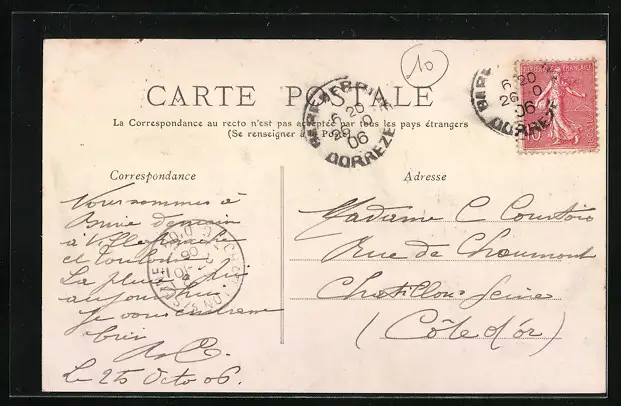 10
CARTE POSTALE
La Correspondance au recto n'est pas acceptée par tous les pays étrangers
(Se renseigner à la Poste)
6 20
26
06
CORREZE
6 20
26
06
CORREZE
10
Correspondance
Nous sommes à
demain
à Villefranche
et Toulouse
La pluie
aujourd'hui
Je vous embrasse
bien
Le 25 Octo 06.
Adresse
Madame C Courtois
Rue de Chaumont
Chatillon s Seine
(Côte d'or)